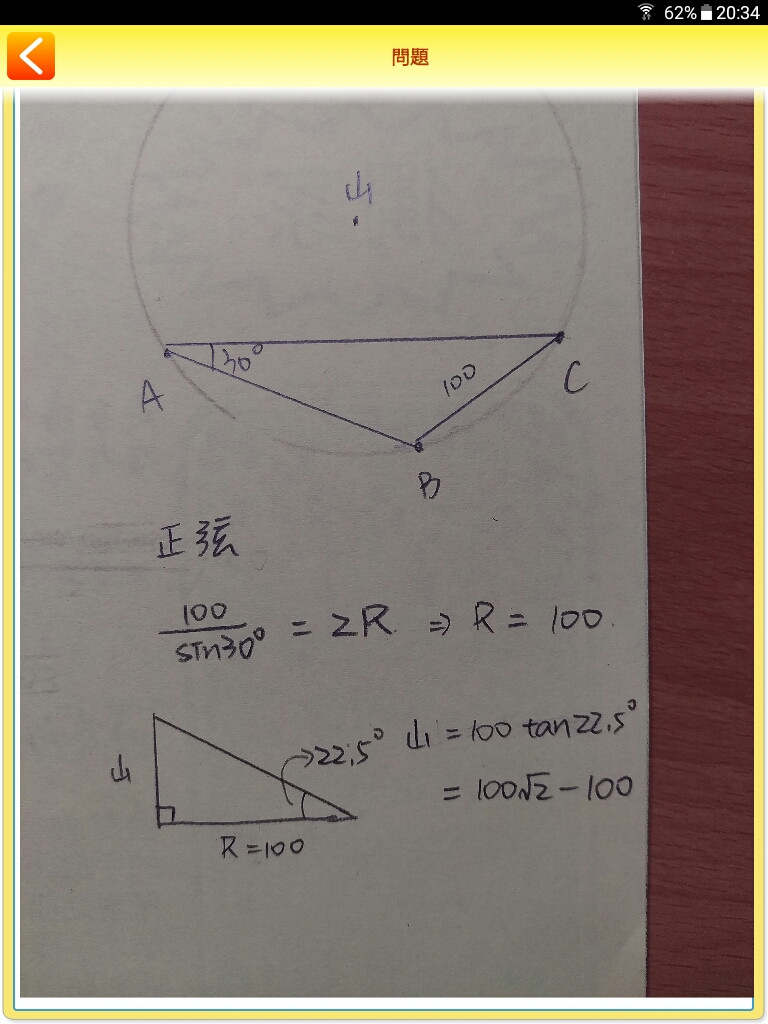 62% 20:34
問題
山
30°
100
A
C
B
正弦
100/sin30° = 2R ⇒ R = 100
山
22.5°
R=100
山 = 100 tan22.5°
= 100√2 - 100